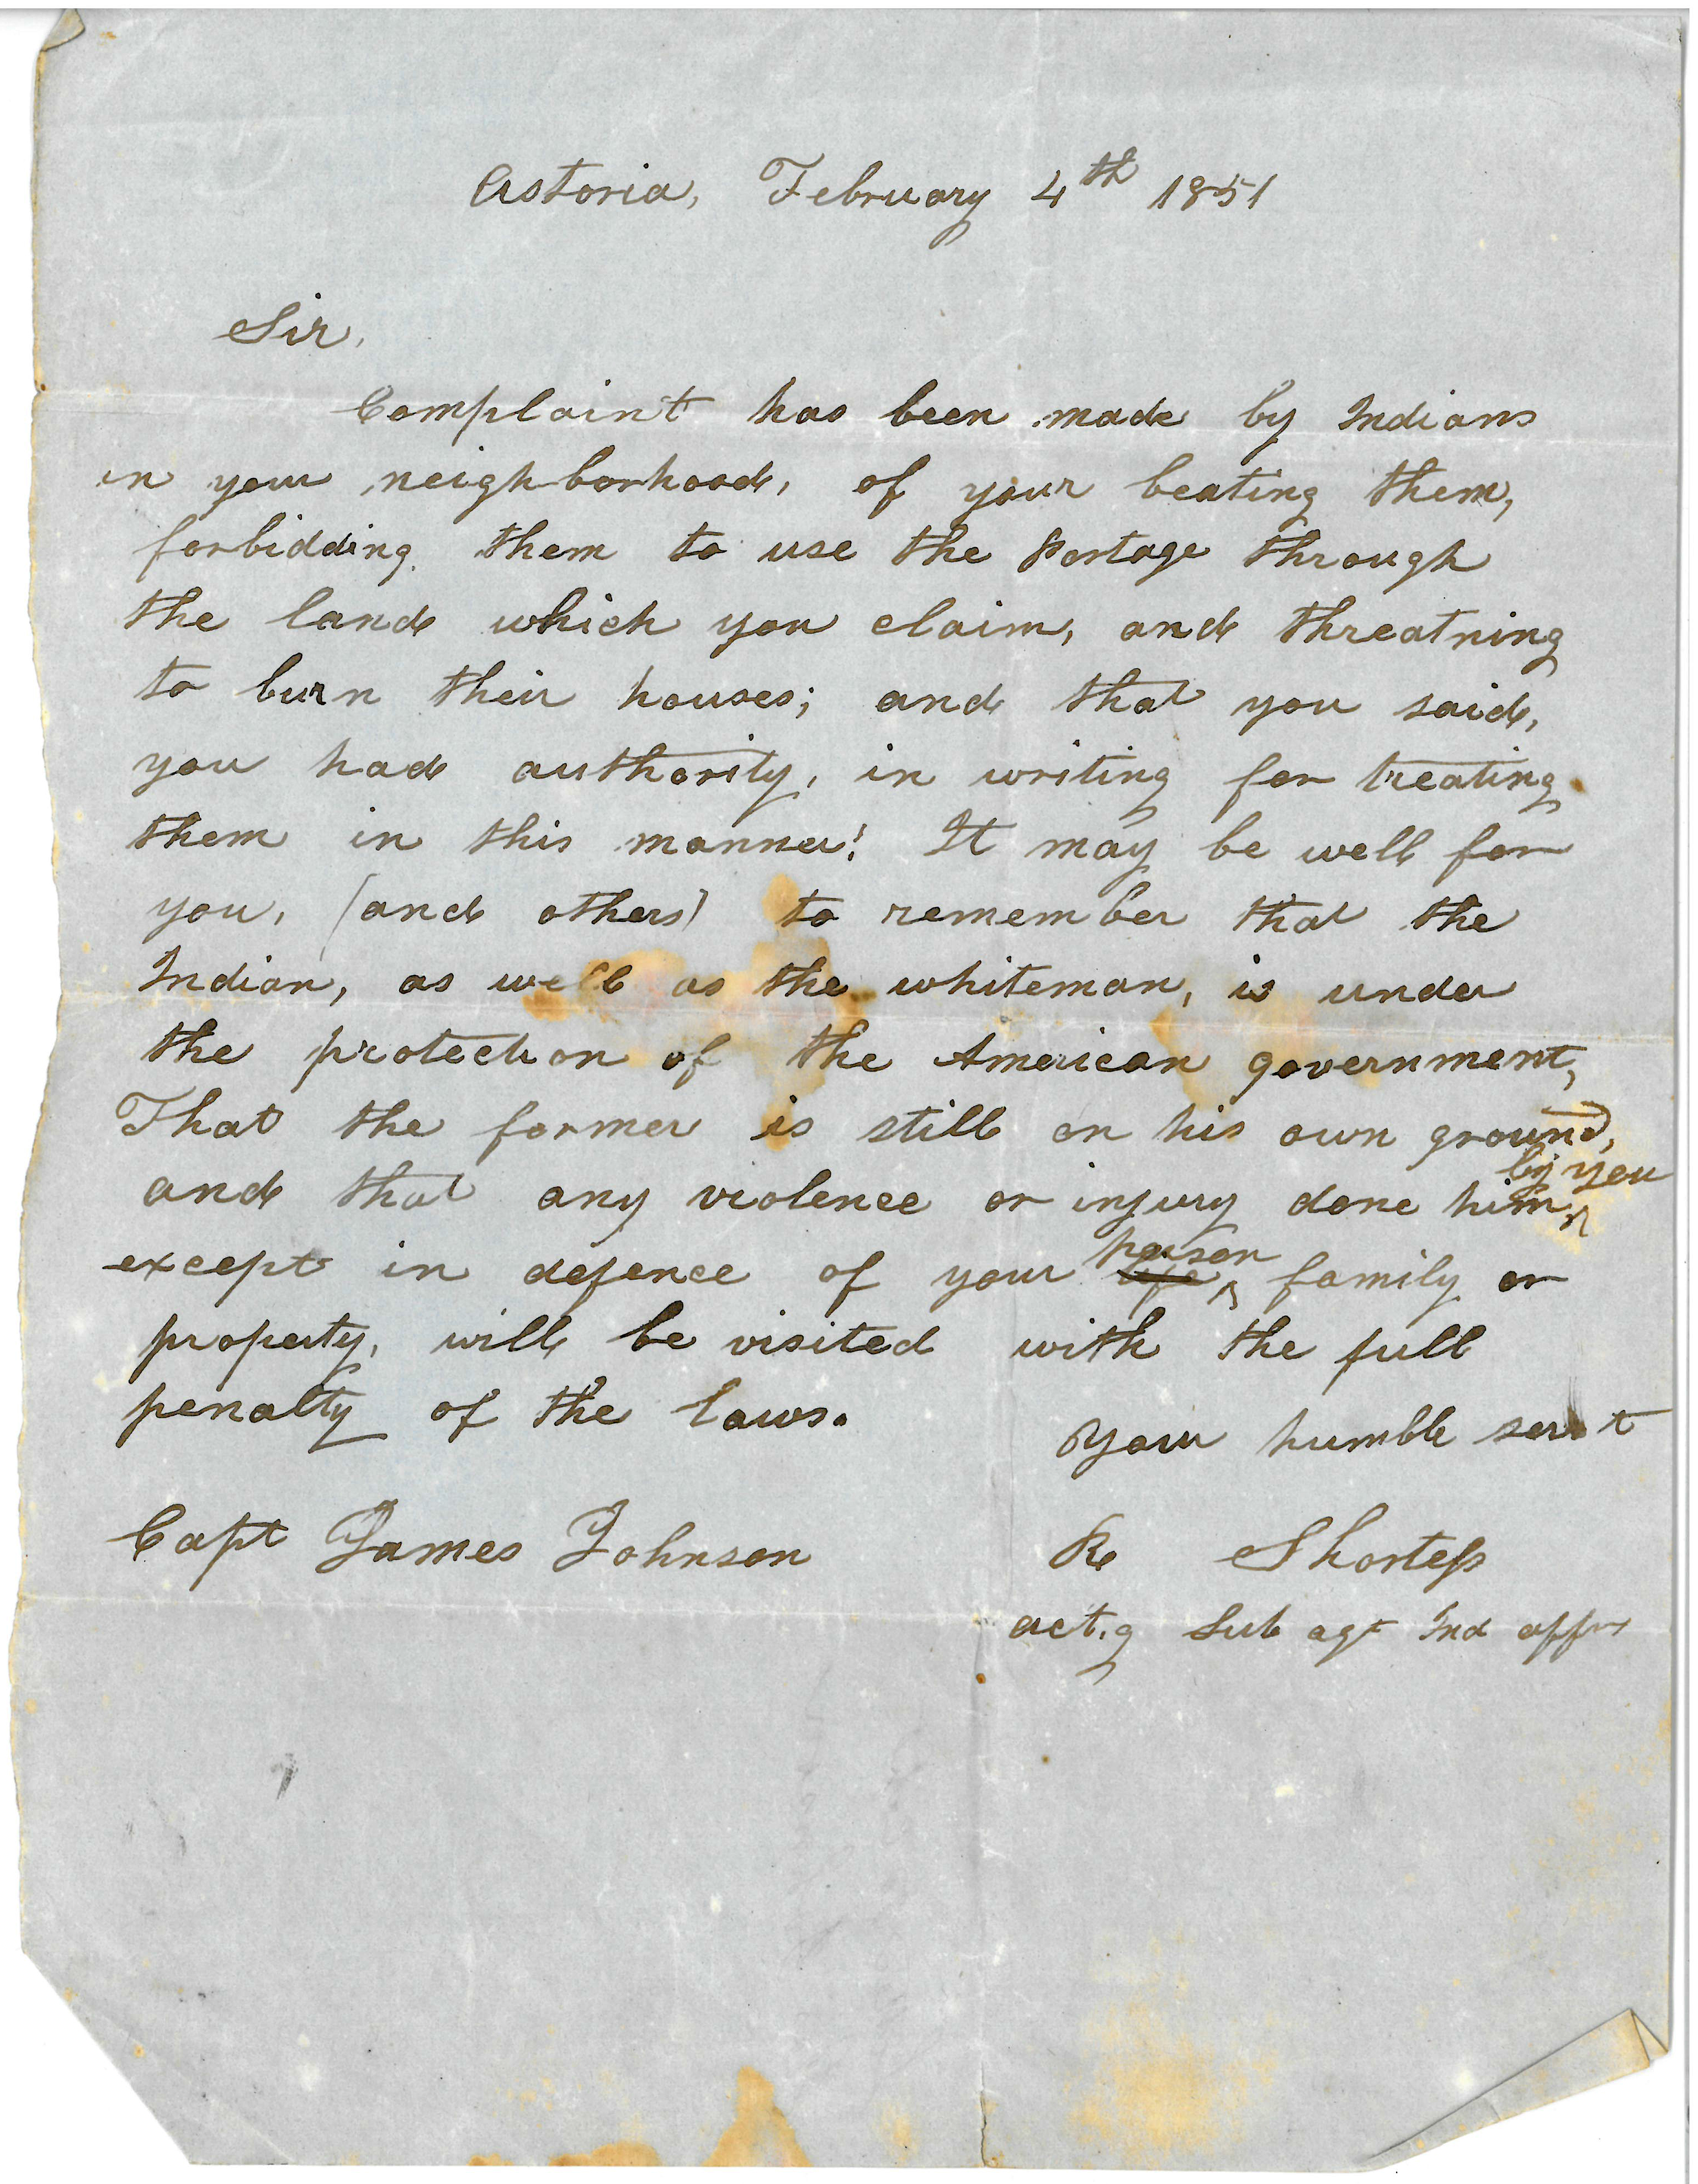 Astoria, February 4th 1851
Sir,
Complaint has been made by Indians
in your neighborhood, of your beating them,
forbidding them to use the Portage through
the land which you claim, and threatning
to burn their houses; and that you said,
you had authority, in writing for treating
them in this manner! It may be well for
you, (and others) to remember that the
Indian, as well as the whiteman, is under
the protection of the American government,
That the former is still on his own ground,
and that any violence or injury done him by you
except in defence of your person family or
property, will be visited with the full
penalty of the laws.
Your humble servt
Capt James Johnson
R Shortess
act.g Sub agt Ind affrs